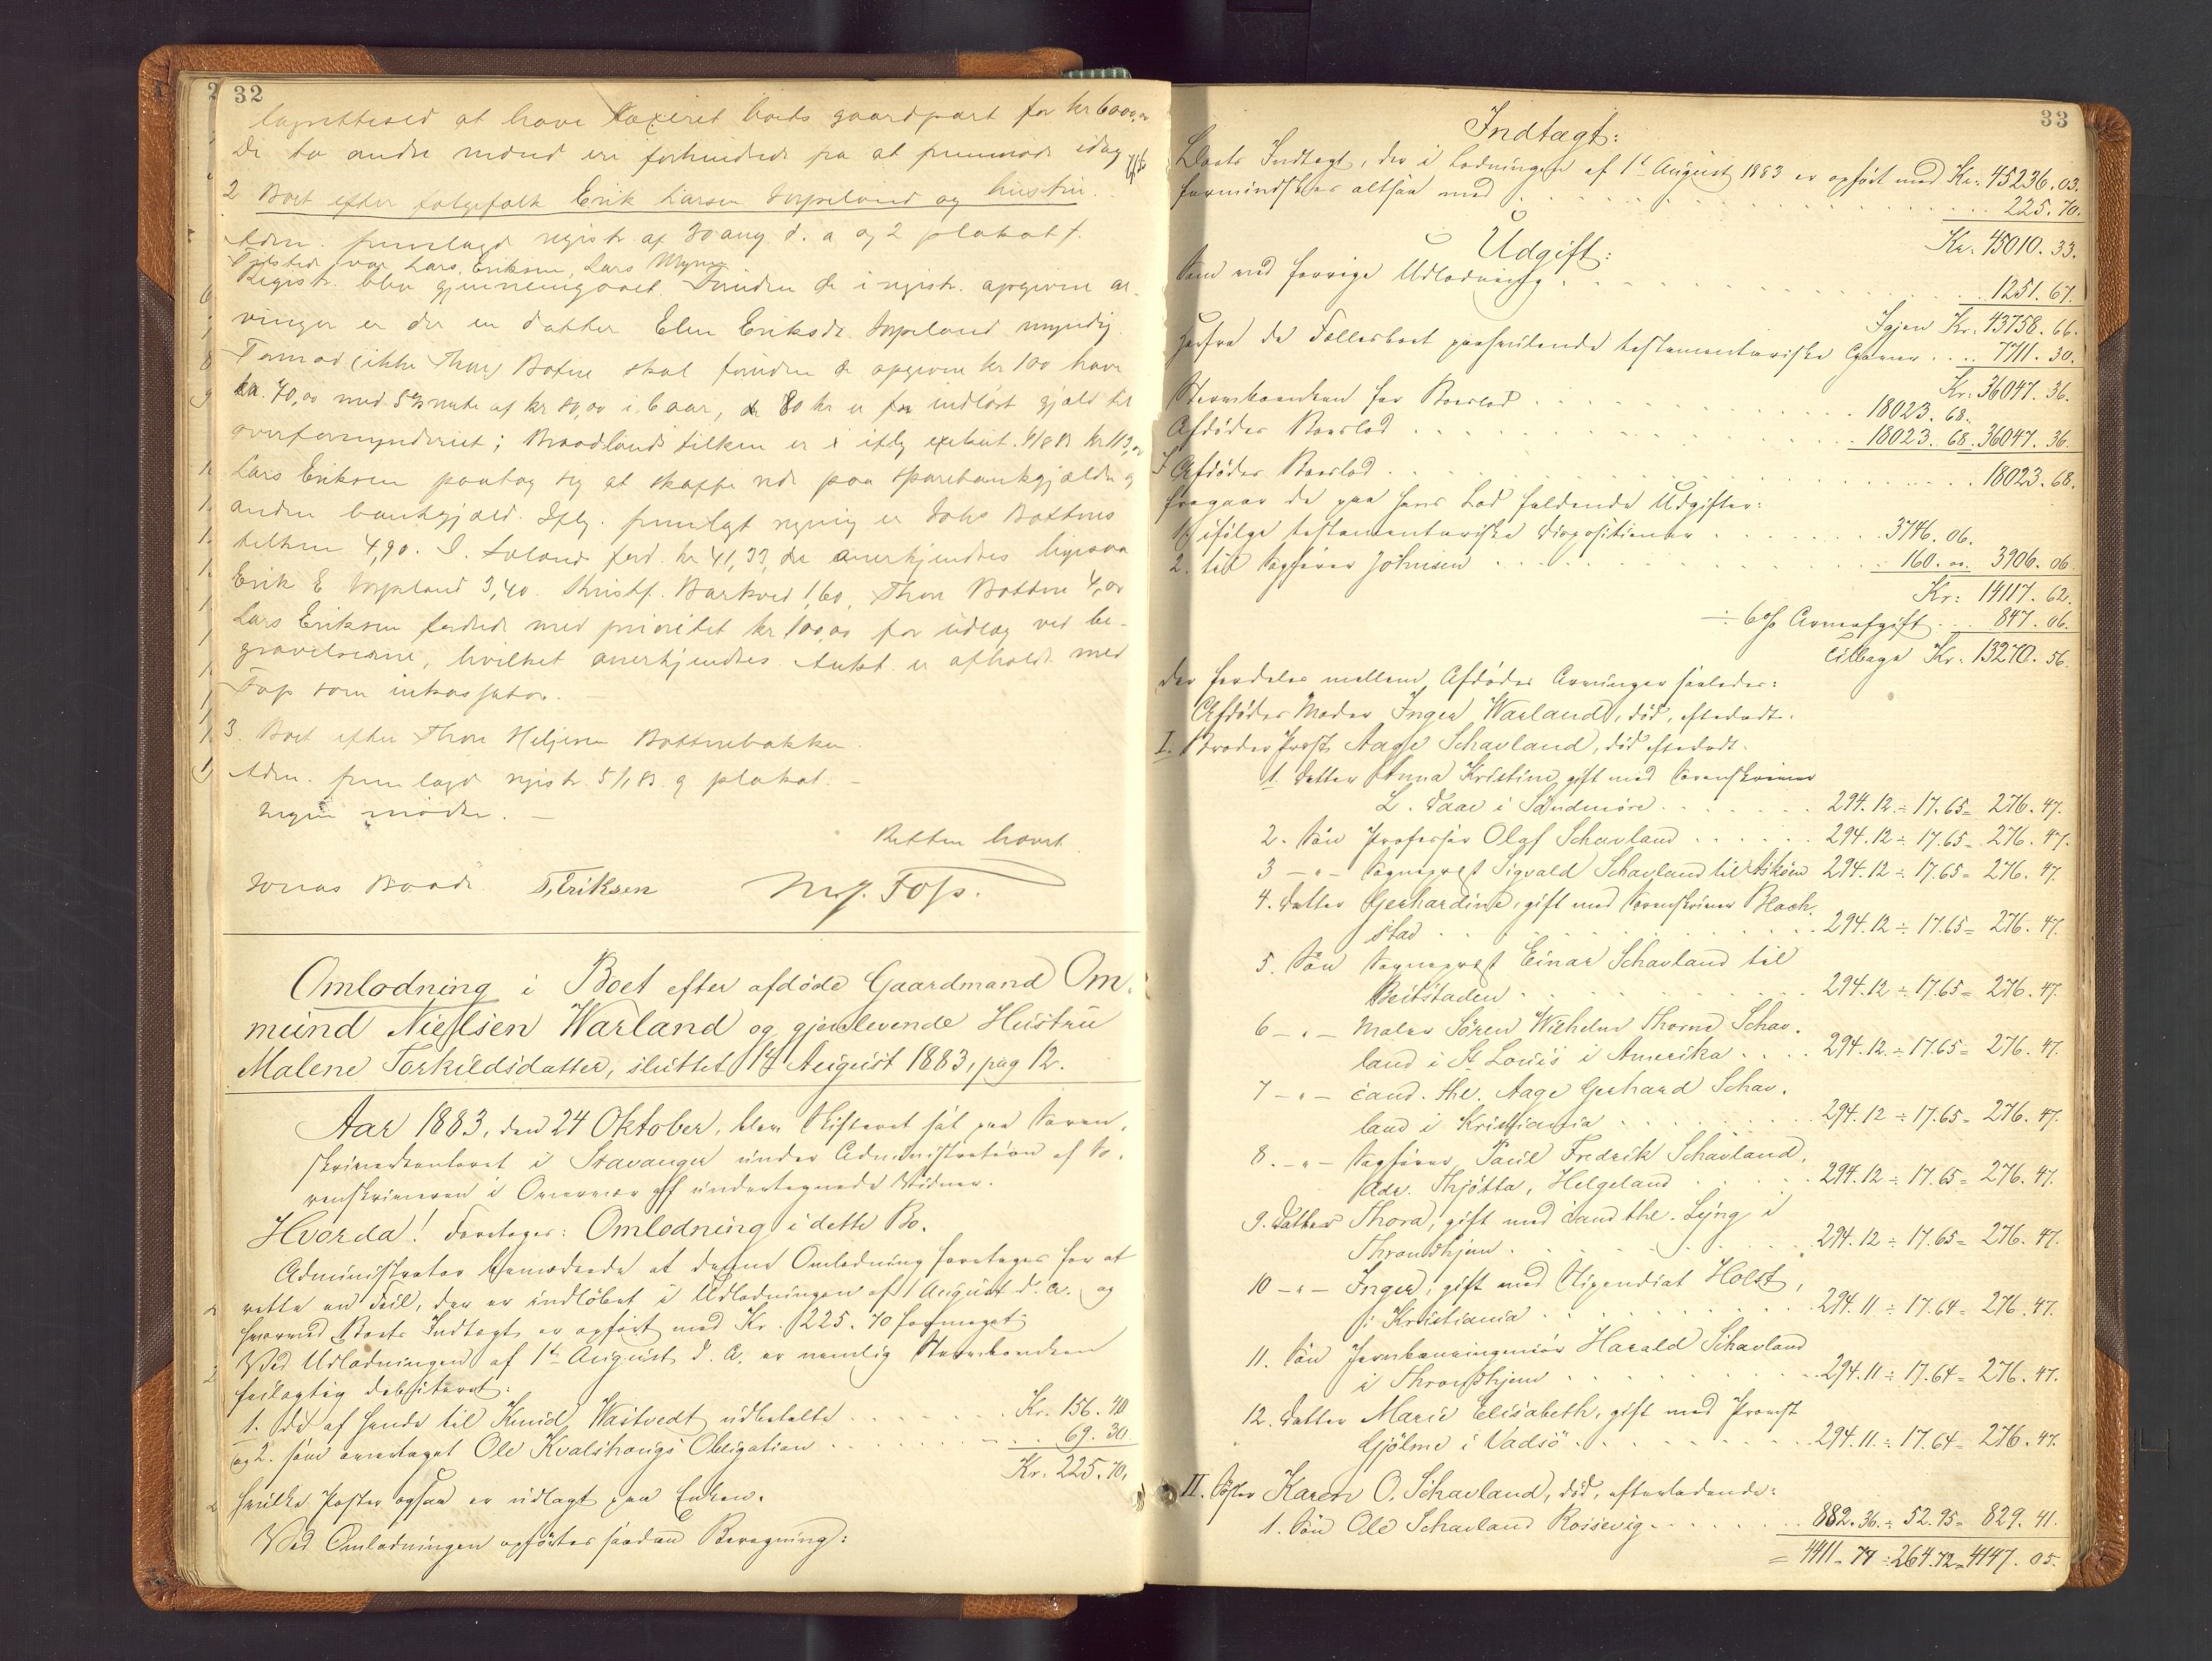 32
lagrettesed at have taxeret boets gaardpart for kr 6000,00
De to andre mænd ere forhindrede fra at fremmøde idag
2 Boet efter folgefolk Erik Larsen Impeland og hustru.
Adm. fremlagde registr. af 30 aug d. a og 2 plakat f.
Tilstede var Lars Eriksen, Lars
Registr. blev gjennemgaaet. Foruden de i registr. opgivne ar-
vinger er der en datter Elen Eriksdr. Impeland myndig.
(ikke Thore) Botne skal foruden de opgivne kr 100 have
kr. 70,00 med 5% rente af kr 80,00 i 6 aar, de 80 kr er for indløst gjæld til
overformynderiet; Braadlands tilkom er iflg exekut. kr 113,00
Lars Eriksen paatog sig at skaffe rede paa sparebankgjælden og
anden bankgjæld. Iflg. fremlagt regning er Johs Bottnes
tilkom 4,90. S. Soland ford. kr 41,33, der anerkjendtes ligesaa
Erik E Impeland 3,40. Kristf. Barkved 1,60, Thore Bottne 4,00
Lars Eriksen fordrede med prioritet kr 100,00 for udlæg ved be-
gravelserne, hvilket anerkjendtes. Aukt. er afholdt med
Foss som inkassator. –
3. Boet efter Thore Heljesen Bottnebakken.
Adm. fremlagde registr. 5/1 83 og plakat. –
Ingen mødte. –
Retten hævet.
Jonas Boade T. Eriksen Foss.
Omlodning i Boet efter afdøde Gaardmand Om-
mund Nielsen Warland og gjenlevende Hustru
Malene Torkildsdatter, sluttet 14 August 1883, pag 12.
Aar 1883, den 24 Oktober, blev Skifteret sat paa Soren-
skriverkontoret i Stavanger under Administration af So-
renskriveren i overvær af undertegnede Vidner.
Hvorda! Foretoges: Omlodning i dette Bo.
Administrator bemærkede at denne Omlodning foretages for at
rette en Feil, der er indløbet i Udlodningen af 1 August d. a. og
hvorved Boets Indtægt er opført med Kr. 225.70 formeget
Ved Udlodningen af 1ste August d. A. er nemlig Stervboenken
feilagtig debiteret:
1. De af hende til Knud Wastvedt udbetalte . . . Kr. 156.40
og 2. som overtaget Ole Kvalshougs Obligation . . . 69.30.
Kr. 225.70,
hvilke Poster ogsaa er udlagt paa Enken.
Ved Omlodningen opførtes saadan Beregning:
33
Indtægt:
Boets Indtægt, der i Lodningen af 1ste August 1883 er opført med Kr. 45236.03.
formindskes altsaa med . . . 225.70.
Kr. 45010.33.
Udgift:
Som ved forrige Udlodning . . . 1251.67.
Igjen Kr. 43758.66.
Herfra de Fællesboet paahvilende testamentariske Gaver . . . 7711.30.
Kr. 36047.36.
Stervboenken for Boeslod . . . 18023.68.
Afdødes Boeslod . . . 18023.68. 36047.36.
I Afdødes Boeslod . . . 18023.68.
fragaar de paa hans Lod faldende Udgifter:
1. ifølge testamentariske Dispositioner . . . 3746.06.
2. til Sagfører Johnsen . . . 160.00. 3906.06.
Kr: 14117.62.
÷ 6% Arveafgift . . . 847.06.
Tilbage Kr. 13270.56.
der fordeles mellem Afdødes Arvinger saaledes:
Afdødes Moder Inger Warland, død, efterladt.
I. Broder Provst Aage Schavland, død efterladt.
1. Datter Anna Kristine, gift med Sorenskriver
L. Daae i Søndmøre. . . . 294.12 ÷ 17.65 = 276.47.
2. Søn Professor Olaf Schavland . . . 294.12 ÷ 17.65 = 276.47.
3 – " – Sogneprest Sigvald Schavland til Askøen 294.12 ÷ 17.65 = 276.47.
4. Datter Gerhardine, gift med Sorenskriver Blach-
stad . . . 294.12 ÷ 17.65 = 276.47.
5. Søn Sogneprest Einar Schavland til
Beitstaden . . . 294.12 ÷ 17.65 = 276.47.
6 – " – Maler Søren Wilhelm Thorne Schav-
land i St. Louis i Amerika . . . 294.12 ÷ 17.65 = 276.47.
7 – " – cand. the. Aage Gerhard Schav-
land i Kristiania . . . 294.12 ÷ 17.65 = 276.47.
8. – " – Sagfører Paul Fredrik Schavland,
Adr. Thjøtta, Helgeland . . . 294.12 ÷ 17.65 = 276.47.
9. Datter Thora, gift med cand the. Lyng i
Throndhjem. . . . 294.12 ÷ 17.65 = 276.47.
10 – " – Inger, gift med Stipendiat Holst,
i Kristiania . . . 294.11 ÷ 17.64 = 276.47.
11. Søn Jernbaneingeniør Harald Schavland
i Throndhjem . . . 294.11 ÷ 17.64 = 276.47.
12. Datter Marie Elisabeth, gift med Provst
Gjølme i Vadsø . . . 294.11 ÷ 17.64 = 276.47.
II. Søster Karen O. Schavland, død, efterladende:
1. Søn Ole Schavland Rossevig. . . . 882.36 ÷ 52.95 = 829.41.
= 4411.77 ÷ 264.72 = 4147.05.